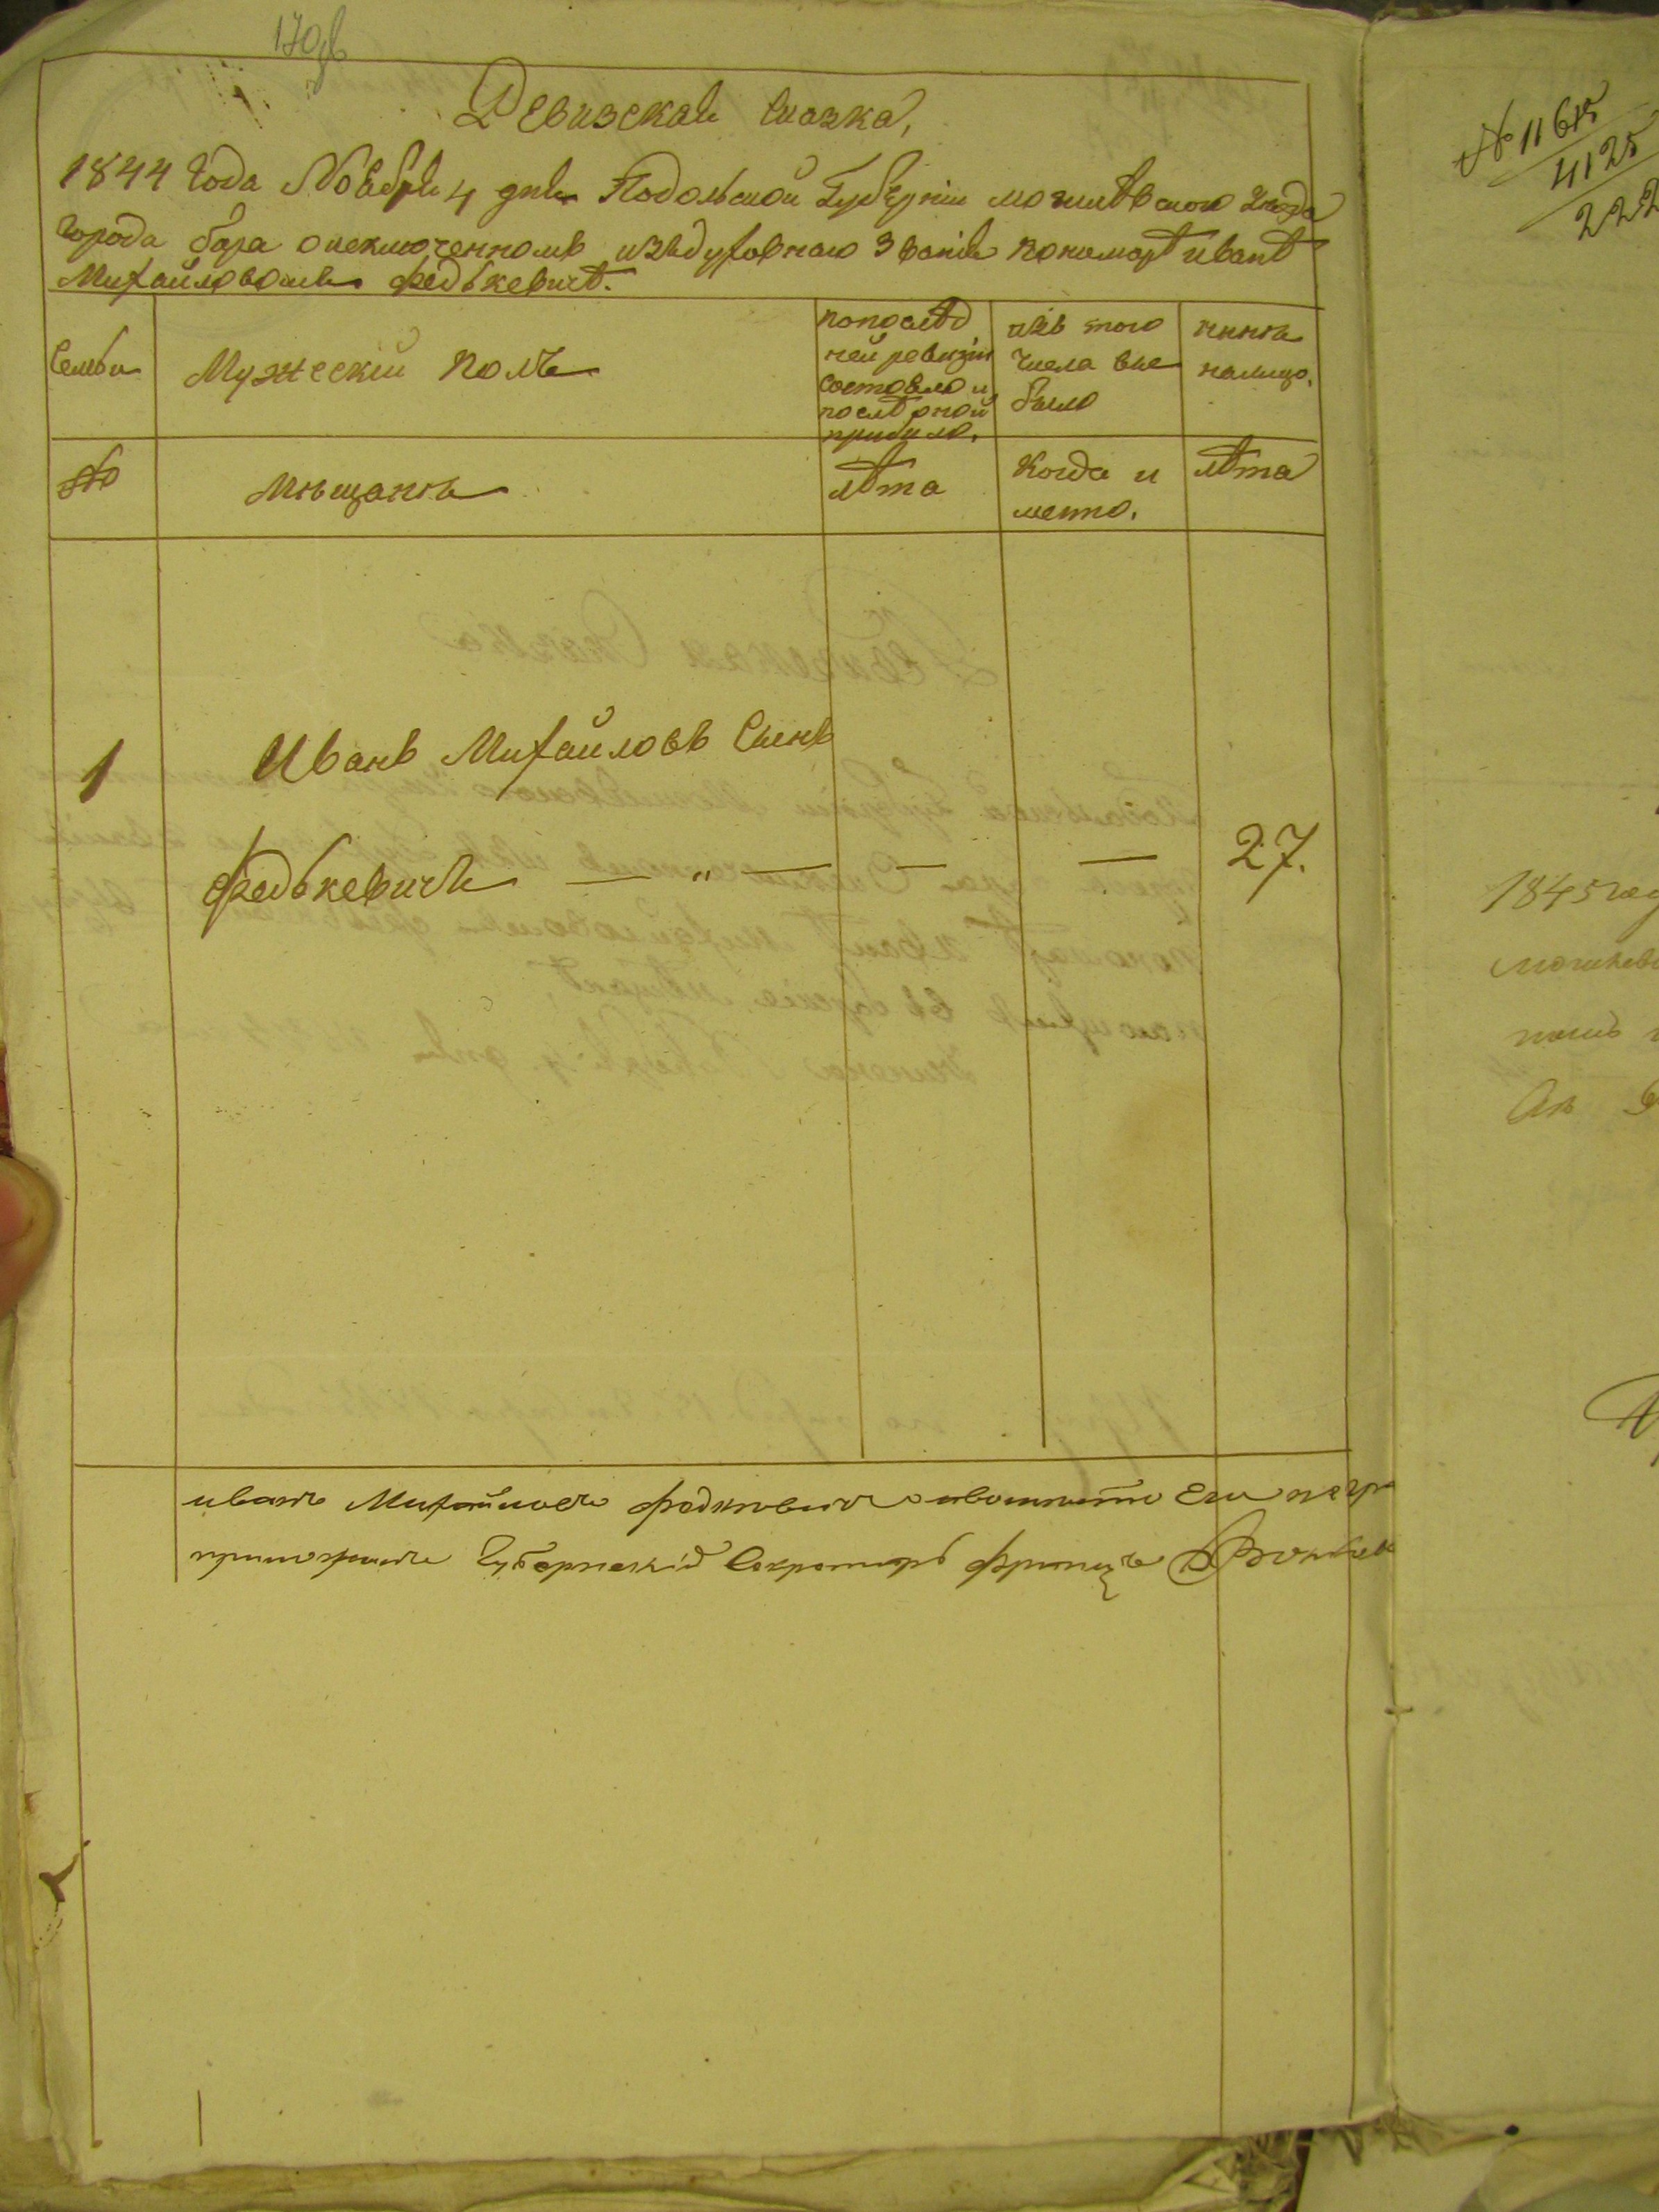 170об
Ревизская Сказка,
1844 года Ноября 4 дня Подольской Губерніи могилѣвского уѣзда
города бара о исключенномъ изъ духовнаго званія пономарѣ иванѣ
Михайловомъ Федькевичѣ.
Семьи
Мужескій полъ
попослѣд
ней ревизіи
состояло и
послѣ оной
прибыло.
изъ того
числа вы
было
нынѣ
налицо.
№
Мѣщанъ
лѣта
Когда и
менно.
лѣта
1
Иванъ Михайловъ Сынъ
Федькевичъ — „ — — — 27.
иванъ Михайловъ
Губернскій Секретарь Францъ
№ 11615
4125
222
1845